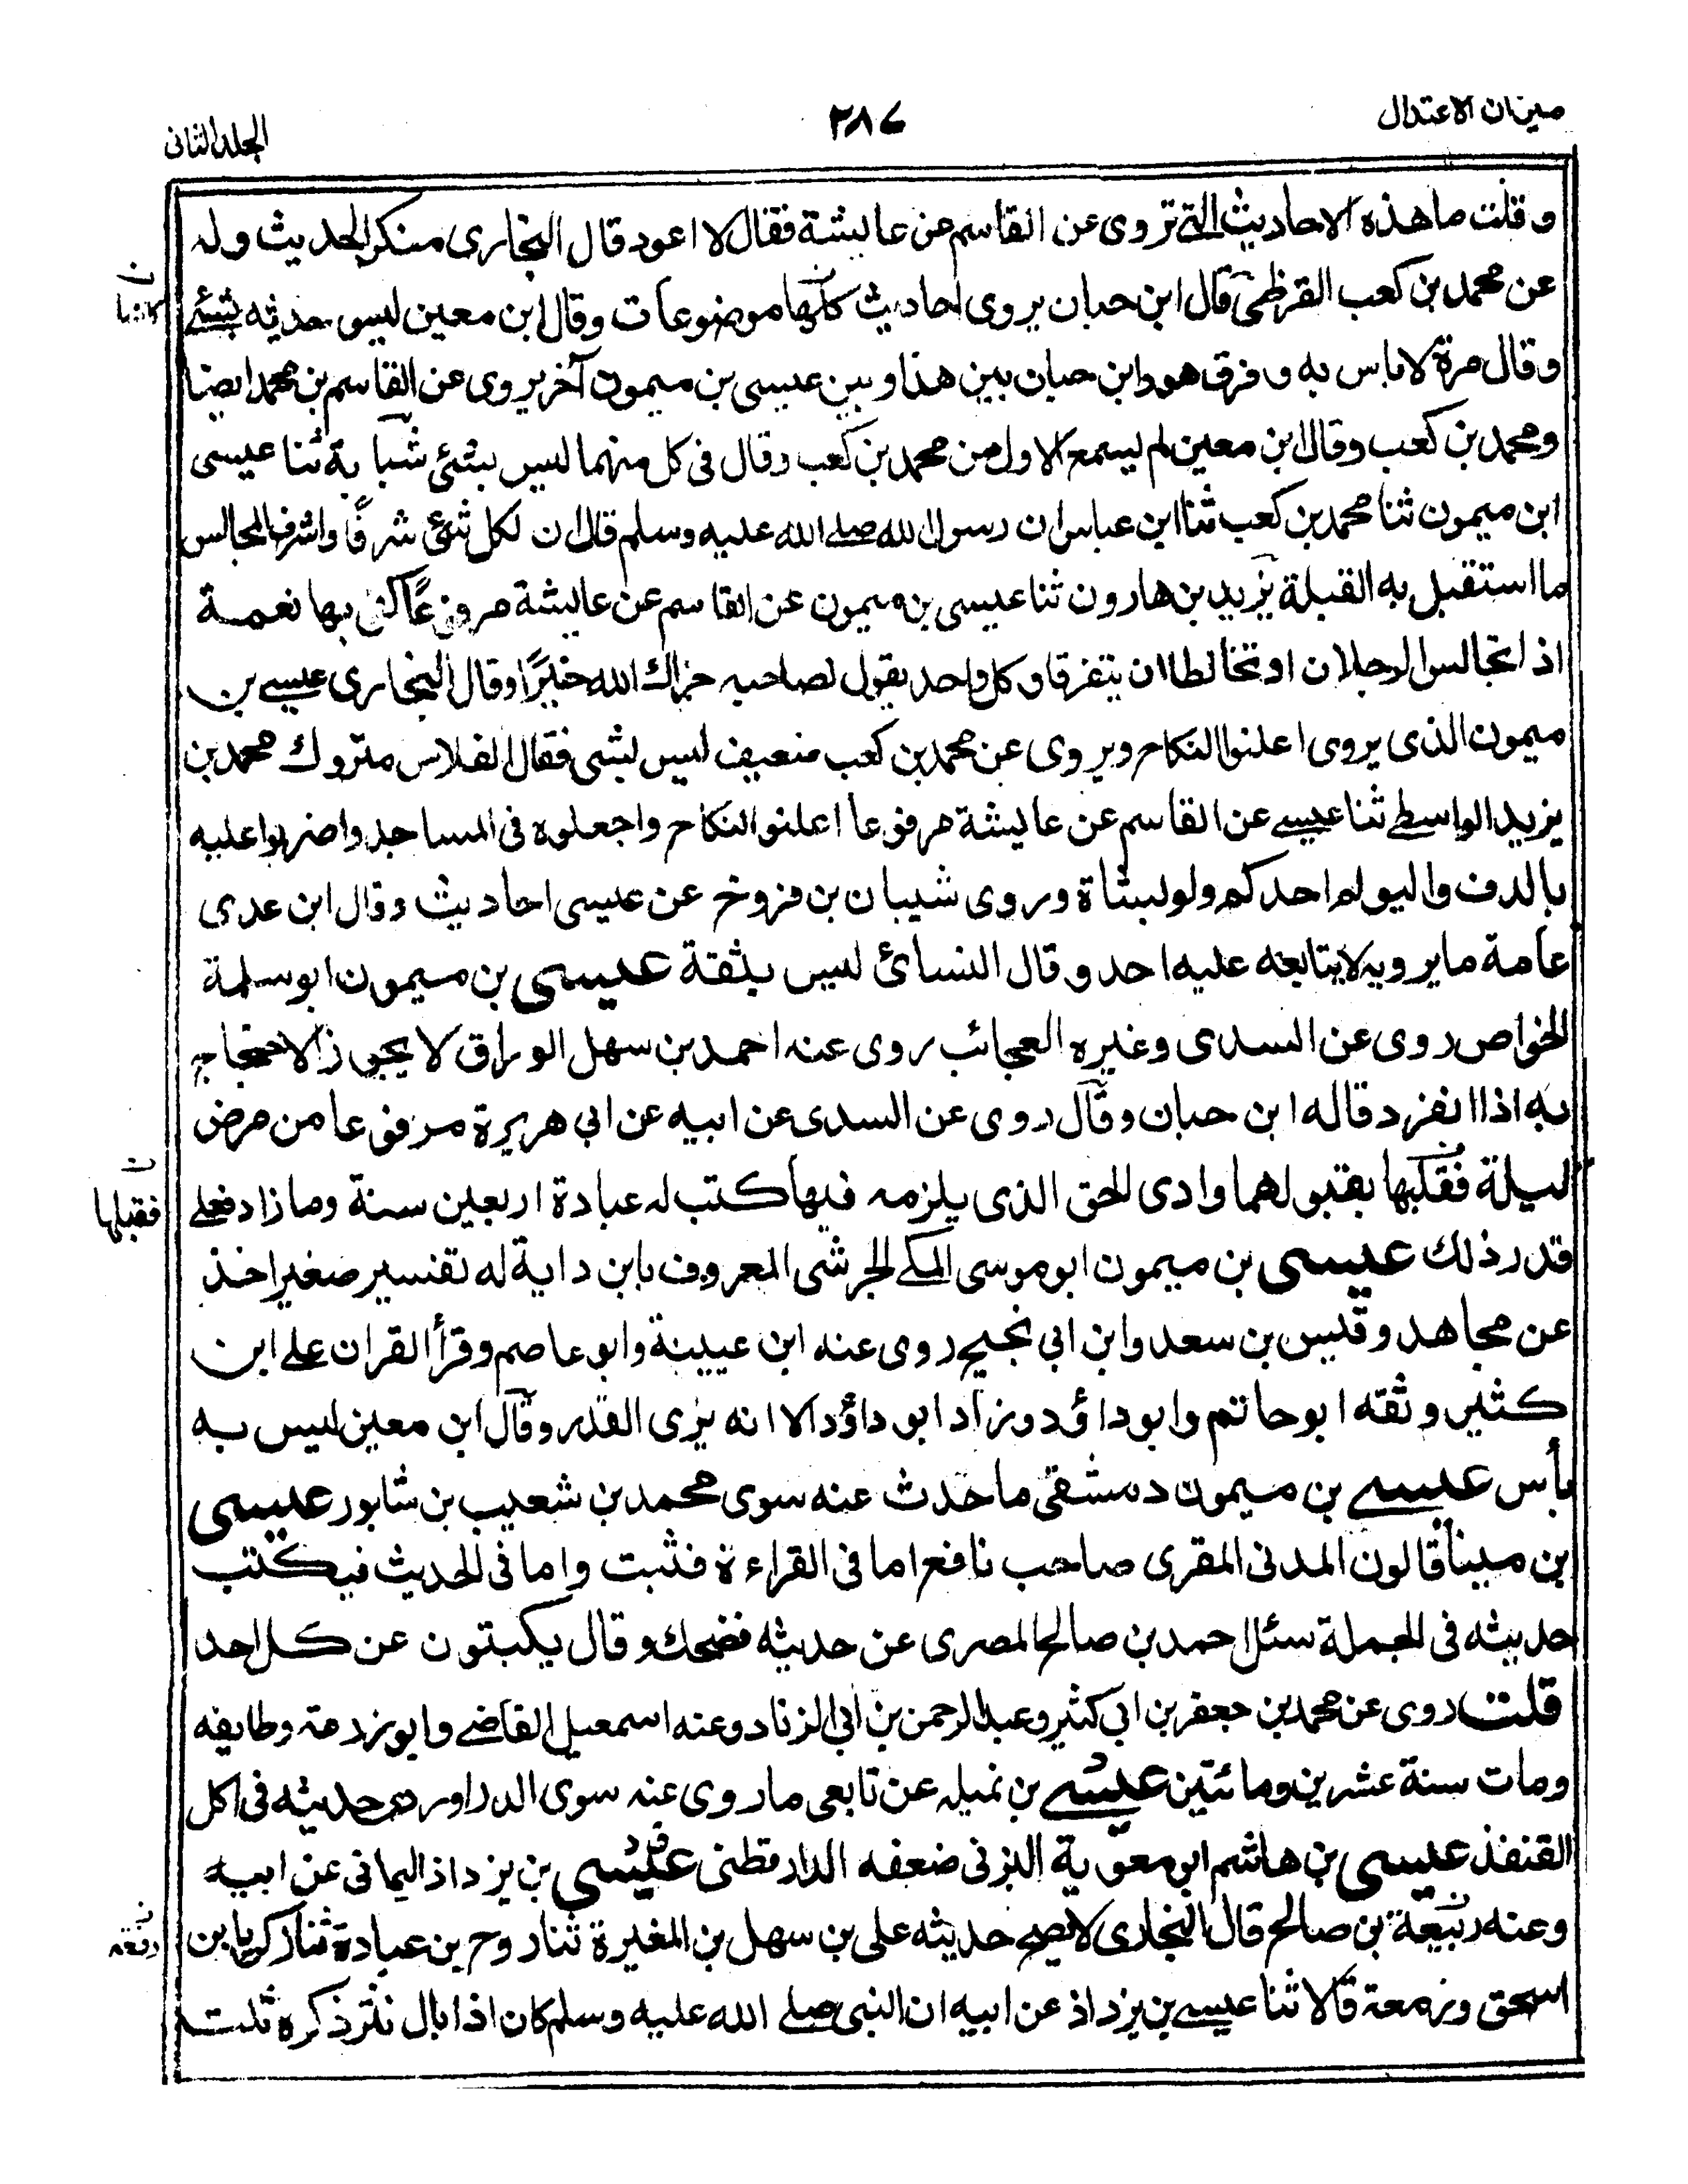 ميزان الاعتدال
٣٨٧
المجلد الثانى
وقلت ما هذه الاحاديث التى تروى عن القاسم عن عايشة فقال لا اعود قال البخارى منكر الحديث وله
عن محمد بن كعب القرظى قال ابن حبان يروى احاديث كلها موضوعات وقال ابن معين ليس حديثه بشئ
وقال مرة لا باس به وفرق هو وابن حبان بين هذا وبين عيسى بن ميمون آخر يروى عن القاسم بن محمد ايضا
ومحمد بن كعب وقال ابن معين لم يسمع الاول من محمد بن كعب وقال فى كل منهما ليس بشئ شبابة ثنا عيسى
ابن ميمون ثنا محمد بن كعب ثنا ابن عباس ان رسول الله صلى الله عليه وسلم قال ان لكل شئ شرفًا واشرف المجالس
ما استقبل به القبلة يزيد بن هارون ثنا عيسى بن ميمون عن القاسم عن عايشة مرفوعًا كفى بها نعمة
اذا تجالس الرجلان او تخالطا ان يتفرقا وكل واحد يقول لصاحبه جزاك الله خيرًا وقال البخارى عيسى بن
ميمون الذى يروى اعلنوا النكاح ويروى عن محمد بن كعب ضعيف ليس بشى فقال الفلاس متروك محمد بن
يزيد الواسطى ثنا عيسى عن القاسم عن عايشة مرفوعا اعلنوا النكاح واجعلوه فى المساجد واضربوا عليه
بالدف واليولم احدكم ولو بشاة وروى شيبان بن فروخ عن عيسى احاديث وقال ابن عدى
عامة ما يرويه لا يتابعه عليه احد وقال النسائ ليس بثقة عيسى بن ميمون ابو سلمة
الخواص روى عن السدى وغيره العجائب روى عنه احمد بن سهل الوراق لا يجوز الاحتجاج
به اذا انفرد قاله ابن حبان وقال روى عن السدى عن ابيه عن ابي هريرة مرفوعا من مرض
ليلة فقبلها بقبولها وادى الحق الذى يلزمه فيها كتب له عبادة اربعين سنة وما زاد فعلى
فقبلها
قدر ذلك عيسى بن ميمون ابو موسى المكى الجرشى المعروف بابن داية له تفسير صغير اخذ
عن مجاهد وقيس بن سعد وابن ابي نجيح روى عنه ابن عيينة وابو عاصم وقرأ القران على ابن
كثير وثقه ابو حاتم وابو داؤد وزاد ابو داؤد الا انه يرى القدر وقال ابن معين ليس به
بأس عيسى بن ميمون دمشقى ما حدث عنه سوى محمد بن شعيب بن شابور عيسى
بن مينا قالون المدنى المقرى صاحب نافع اما فى القراءة فثبت واما فى الحديث فيكتب
حديثه فى الجملة سئل احمد بن صالح المصرى عن حديثه فضحك وقال يكبتون عن كل احد
قلت روى عن محمد بن جعفر بن ابي كثير وعبد الرحمن بن ابي الزناد وعنه اسمعيل القاضى وابو زرعة وطايفه
ومات سنة عشرين ومائتين عيسى بن نميله عن تابعى ما روى عنه سوى الدراوردى حديثه فى اكل
القنفذ عيسى بن هاشم ابو معوية البزنى ضعفه الدارقطنى عيسى بن يزداذ اليمانى عن ابيه
وعنه ربيعة بن صالح قال البخارى لا يصح حديثه على بن سهل بن المغيرة ثنا روح بن عبادة ثنا زكريا بن
اسحق وزمعة قالا ثنا عيسى بن يزداذ عن ابيه ان النبى صلى الله عليه وسلم كان اذا بال نثر ذكره ثلث